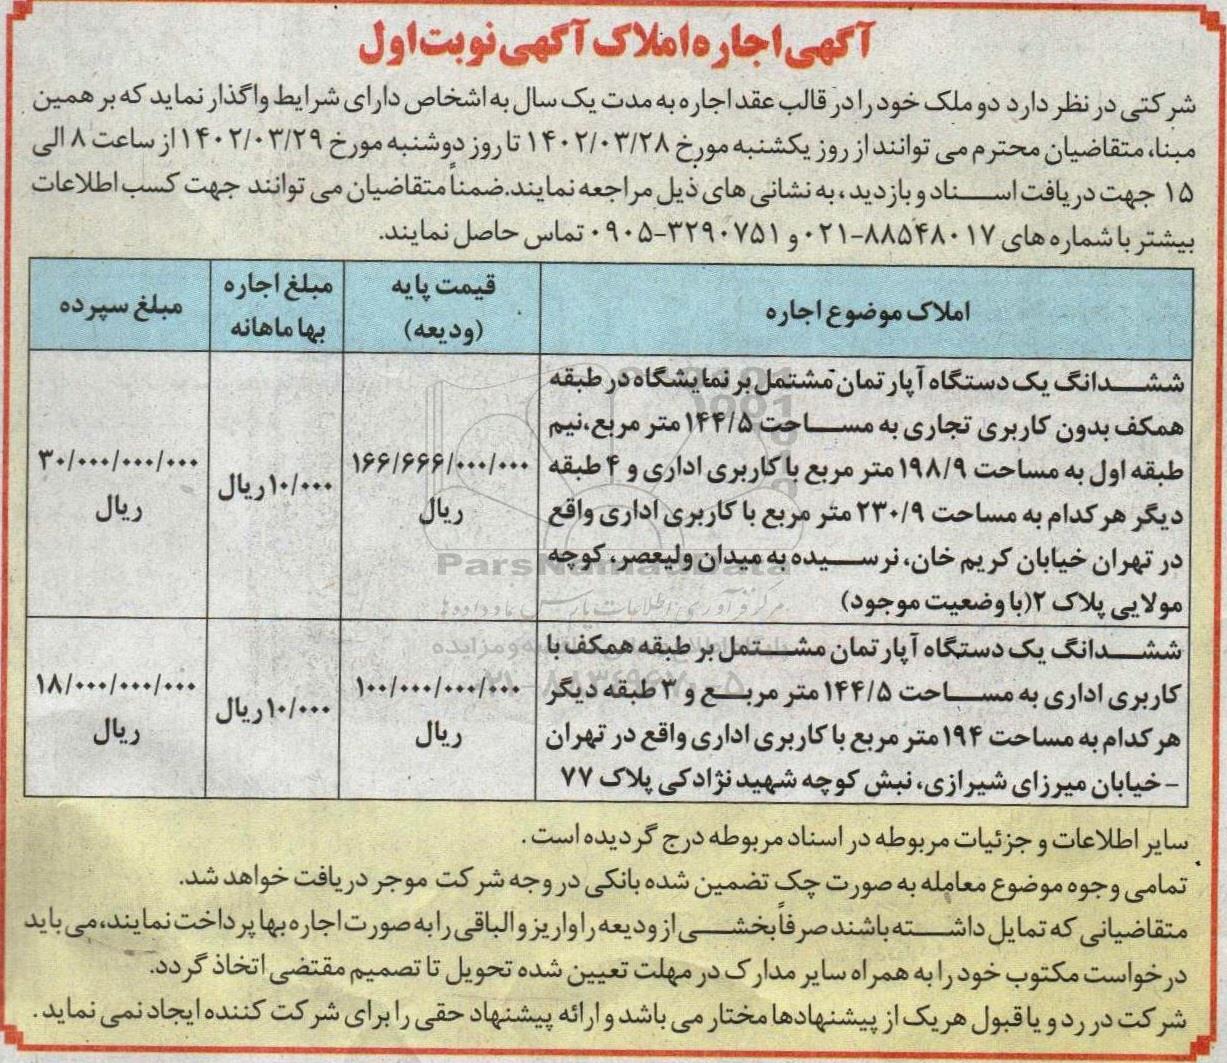 آگهی اجاره املاک آگهی نوبت اول
شرکتی در نظر دارد دو ملک خود را در قالب عقد اجاره به مدت یک سال به اشخاص دارای شرایط واگذار نماید که بر همین
مبنا، متقاضیان محترم می توانند از روز یکشنبه مورخ ۱۴۰۲/۰۳/۲۸ تا روز دوشنبه مورخ ۱۴۰۲/۰۳/۲۹ از ساعت ۸ الی
۱۵ جهت دریافت اسناد و بازدید، به نشانی های ذیل مراجعه نمایند.ضمناً متقاضیان می توانند جهت کسب اطلاعات
بیشتر با شماره های ۸۸۵۴۸۰۱۷-۰۲۱ و ۳۲۹۰۷۵۱-۰۹۰۵ تماس حاصل نمایند.
املاک موضوع اجاره
قیمت پایه
(ودیعه)
مبلغ اجاره
بها ماهانه
مبلغ سپرده
ششدانگ یک دستگاه آپارتمان مشتمل بر نمایشگاه در طبقه
همکف بدون کاربری تجاری به مساحت ۱۴۴/۵ متر مربع،نیم
طبقه اول به مساحت ۱۹۸/۹ متر مربع با کاربری اداری و ۴ طبقه
دیگر هر کدام به مساحت ۲۳۰/۹ متر مربع با کاربری اداری واقع
در تهران خیابان کریم خان، نرسیده به میدان ولیعصر، کوچه
مولایی پلاک ۲(با وضعیت موجود)
۱۶۶/۶۶۶/۰۰۰/۰۰۰
ریال
۱۰/۰۰۰ ریال
۳۰/۰۰۰/۰۰۰/۰۰۰
ریال
ششدانگ یک دستگاه آپارتمان مشتمل بر طبقه همکف با
کاربری اداری به مساحت ۱۴۴/۵ متر مربع و ۳ طبقه دیگر
هر کدام به مساحت ۱۹۴ متر مربع با کاربری اداری واقع در تهران
- خیابان میرزای شیرازی، نبش کوچه شهید نژادکی پلاک ۷۷
۱۰۰/۰۰۰/۰۰۰/۰۰۰
ریال
۱۰/۰۰۰ ریال
۱۸/۰۰۰/۰۰۰/۰۰۰
ریال
سایر اطلاعات و جزئیات مربوطه در اسناد مربوطه درج گردیده است.
تمامی وجوه موضوع معامله به صورت چک تضمین شده بانکی در وجه شرکت موجر دریافت خواهد شد.
متقاضیانی که تمایل داشته باشند صرفاً بخشی از ودیعه را واریز و الباقی را به صورت اجاره بها پرداخت نمایند، می باید
درخواست مکتوب خود را به همراه سایر مدارک در مهلت تعیین شده تحویل تا تصمیم مقتضی اتخاذ گردد.
شرکت در رد و یا قبول هریک از پیشنهادها مختار می باشد و ارائه پیشنهاد حقی را برای شرکت کننده ایجاد نمی نماید.
ParsNamadData